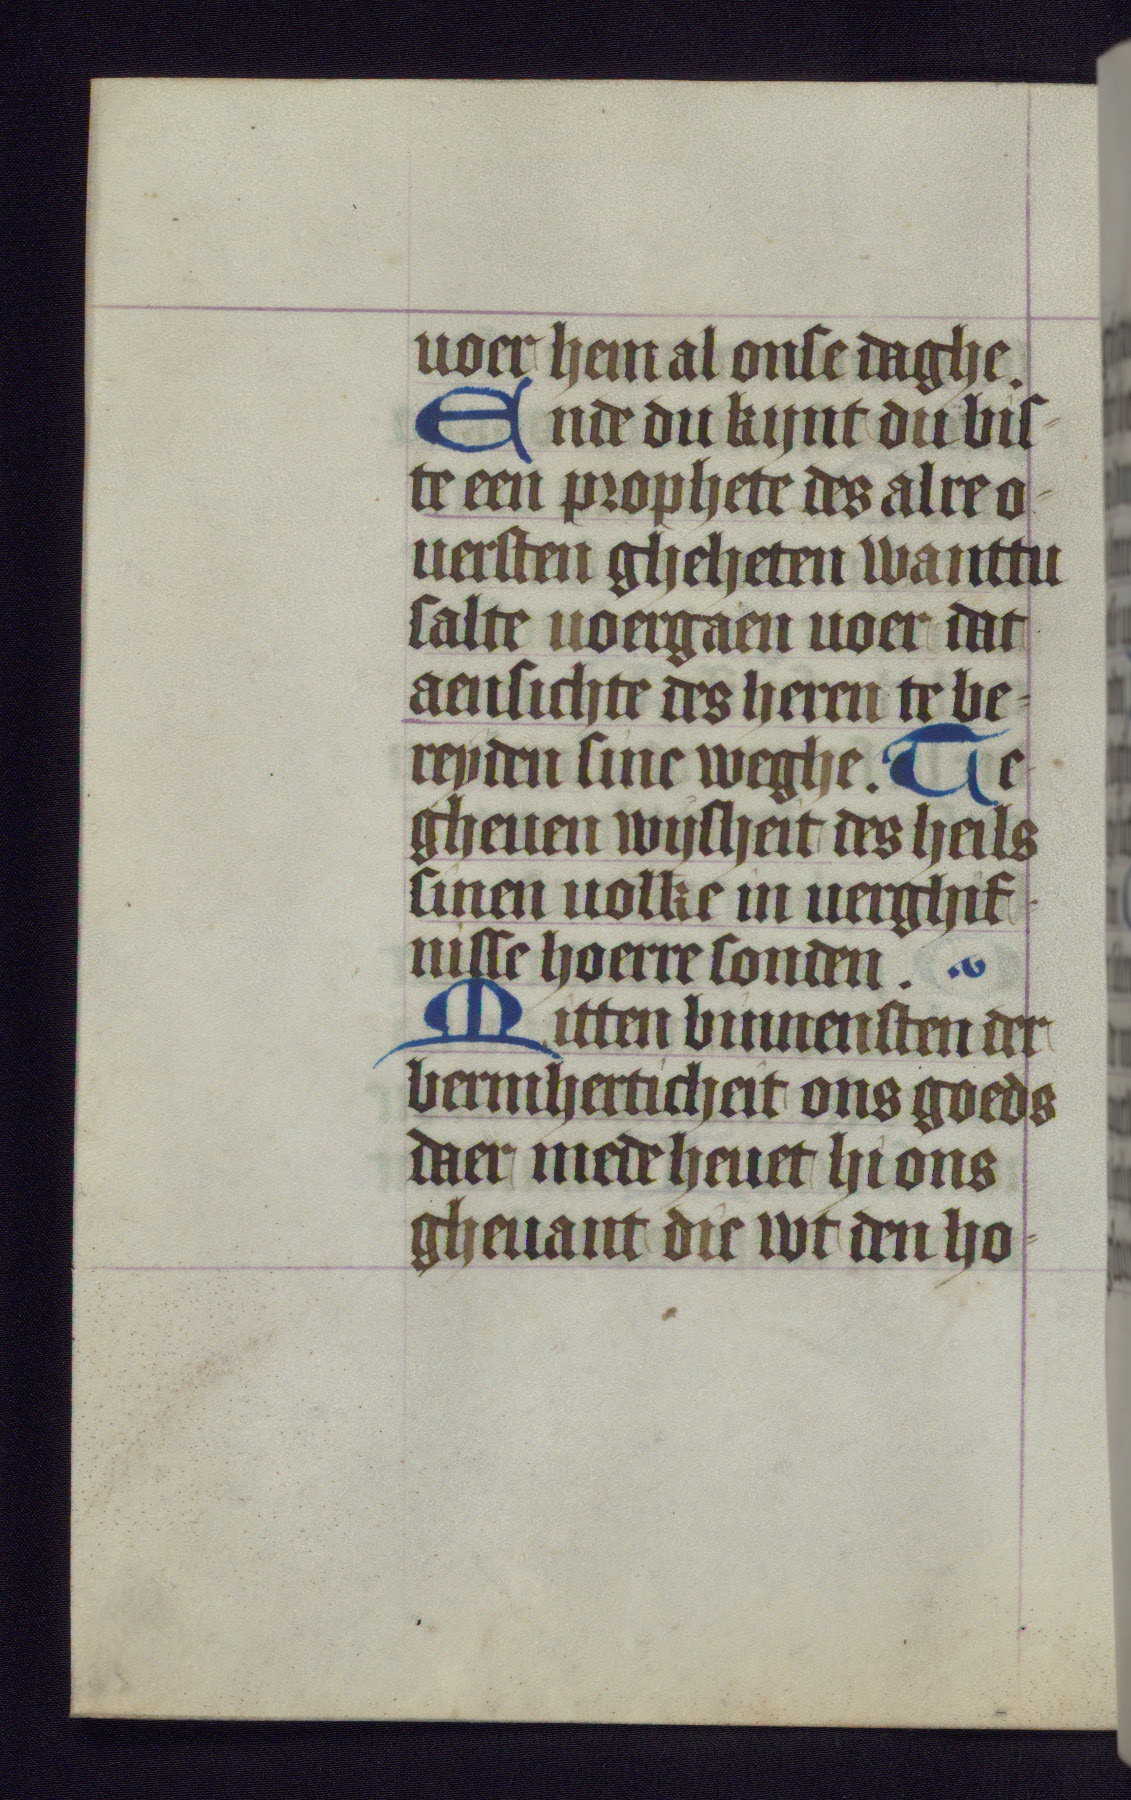 uoer hem al onse daghe.
Ende du kijnt du bis-
te een prophete des alre o-
uersten gheheten wanttu
salte uoergaen uoer dat
aensichte des heren te be-
reyden sine weghe. Te
gheuen wijsheit des heils
sinen uolke in uerghif-
nisse hoerre sonden.
Mitten binnensten der
bermherticheit ons goeds
daer mede heuet hi ons
gheuant die wt den ho-